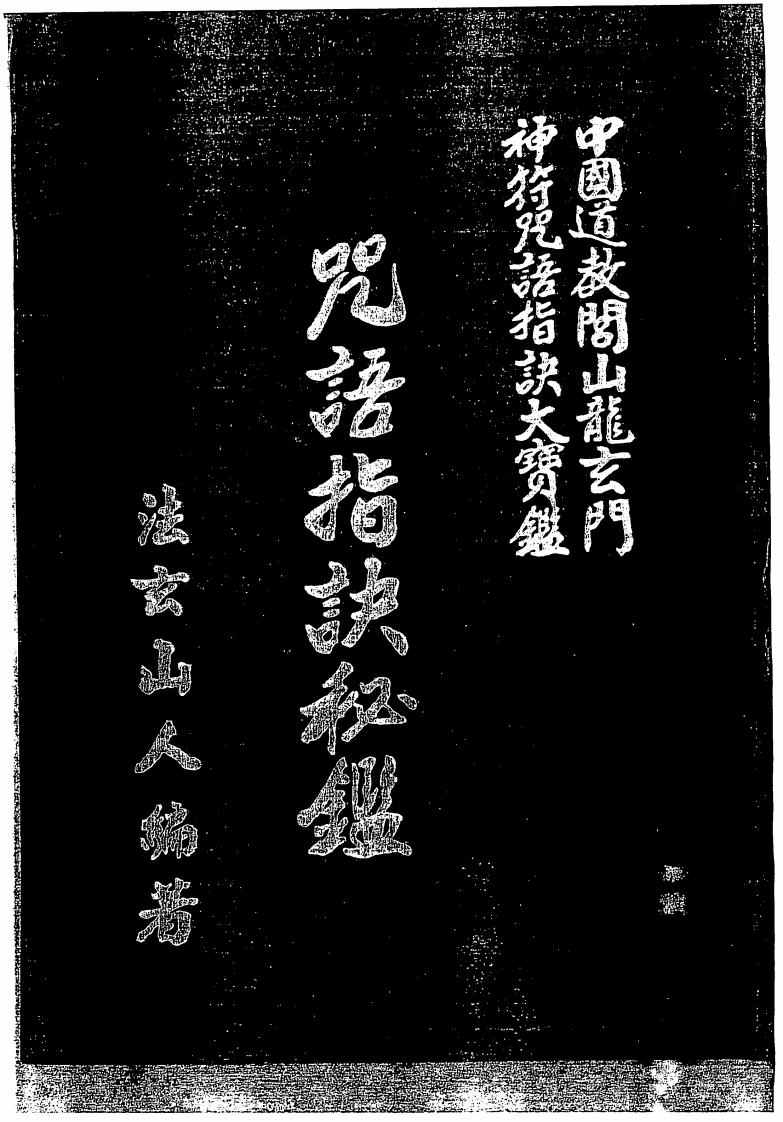 中國道教閭山龍玄門
神符咒語指訣大寶鑑
咒語指訣秘鑑
法玄山人編著